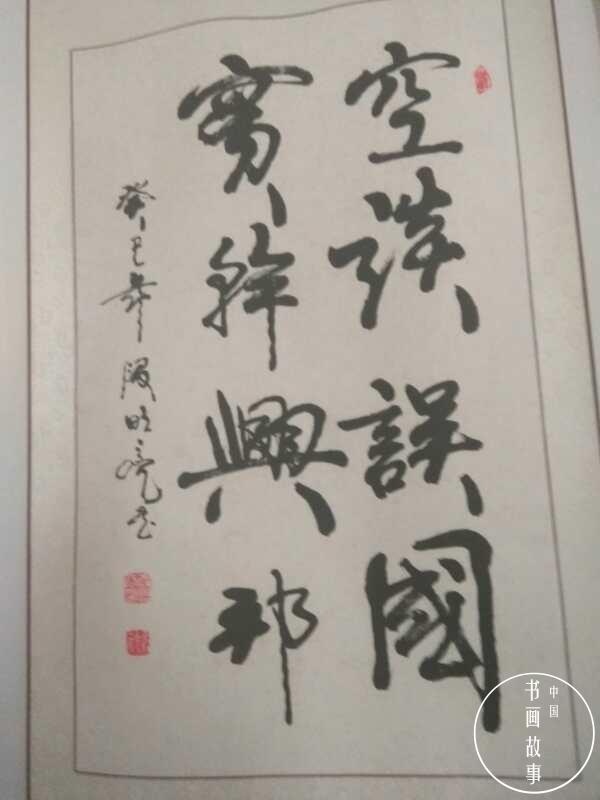 空談誤國
實幹興邦
癸巳年段明亮书
中国
书画故事